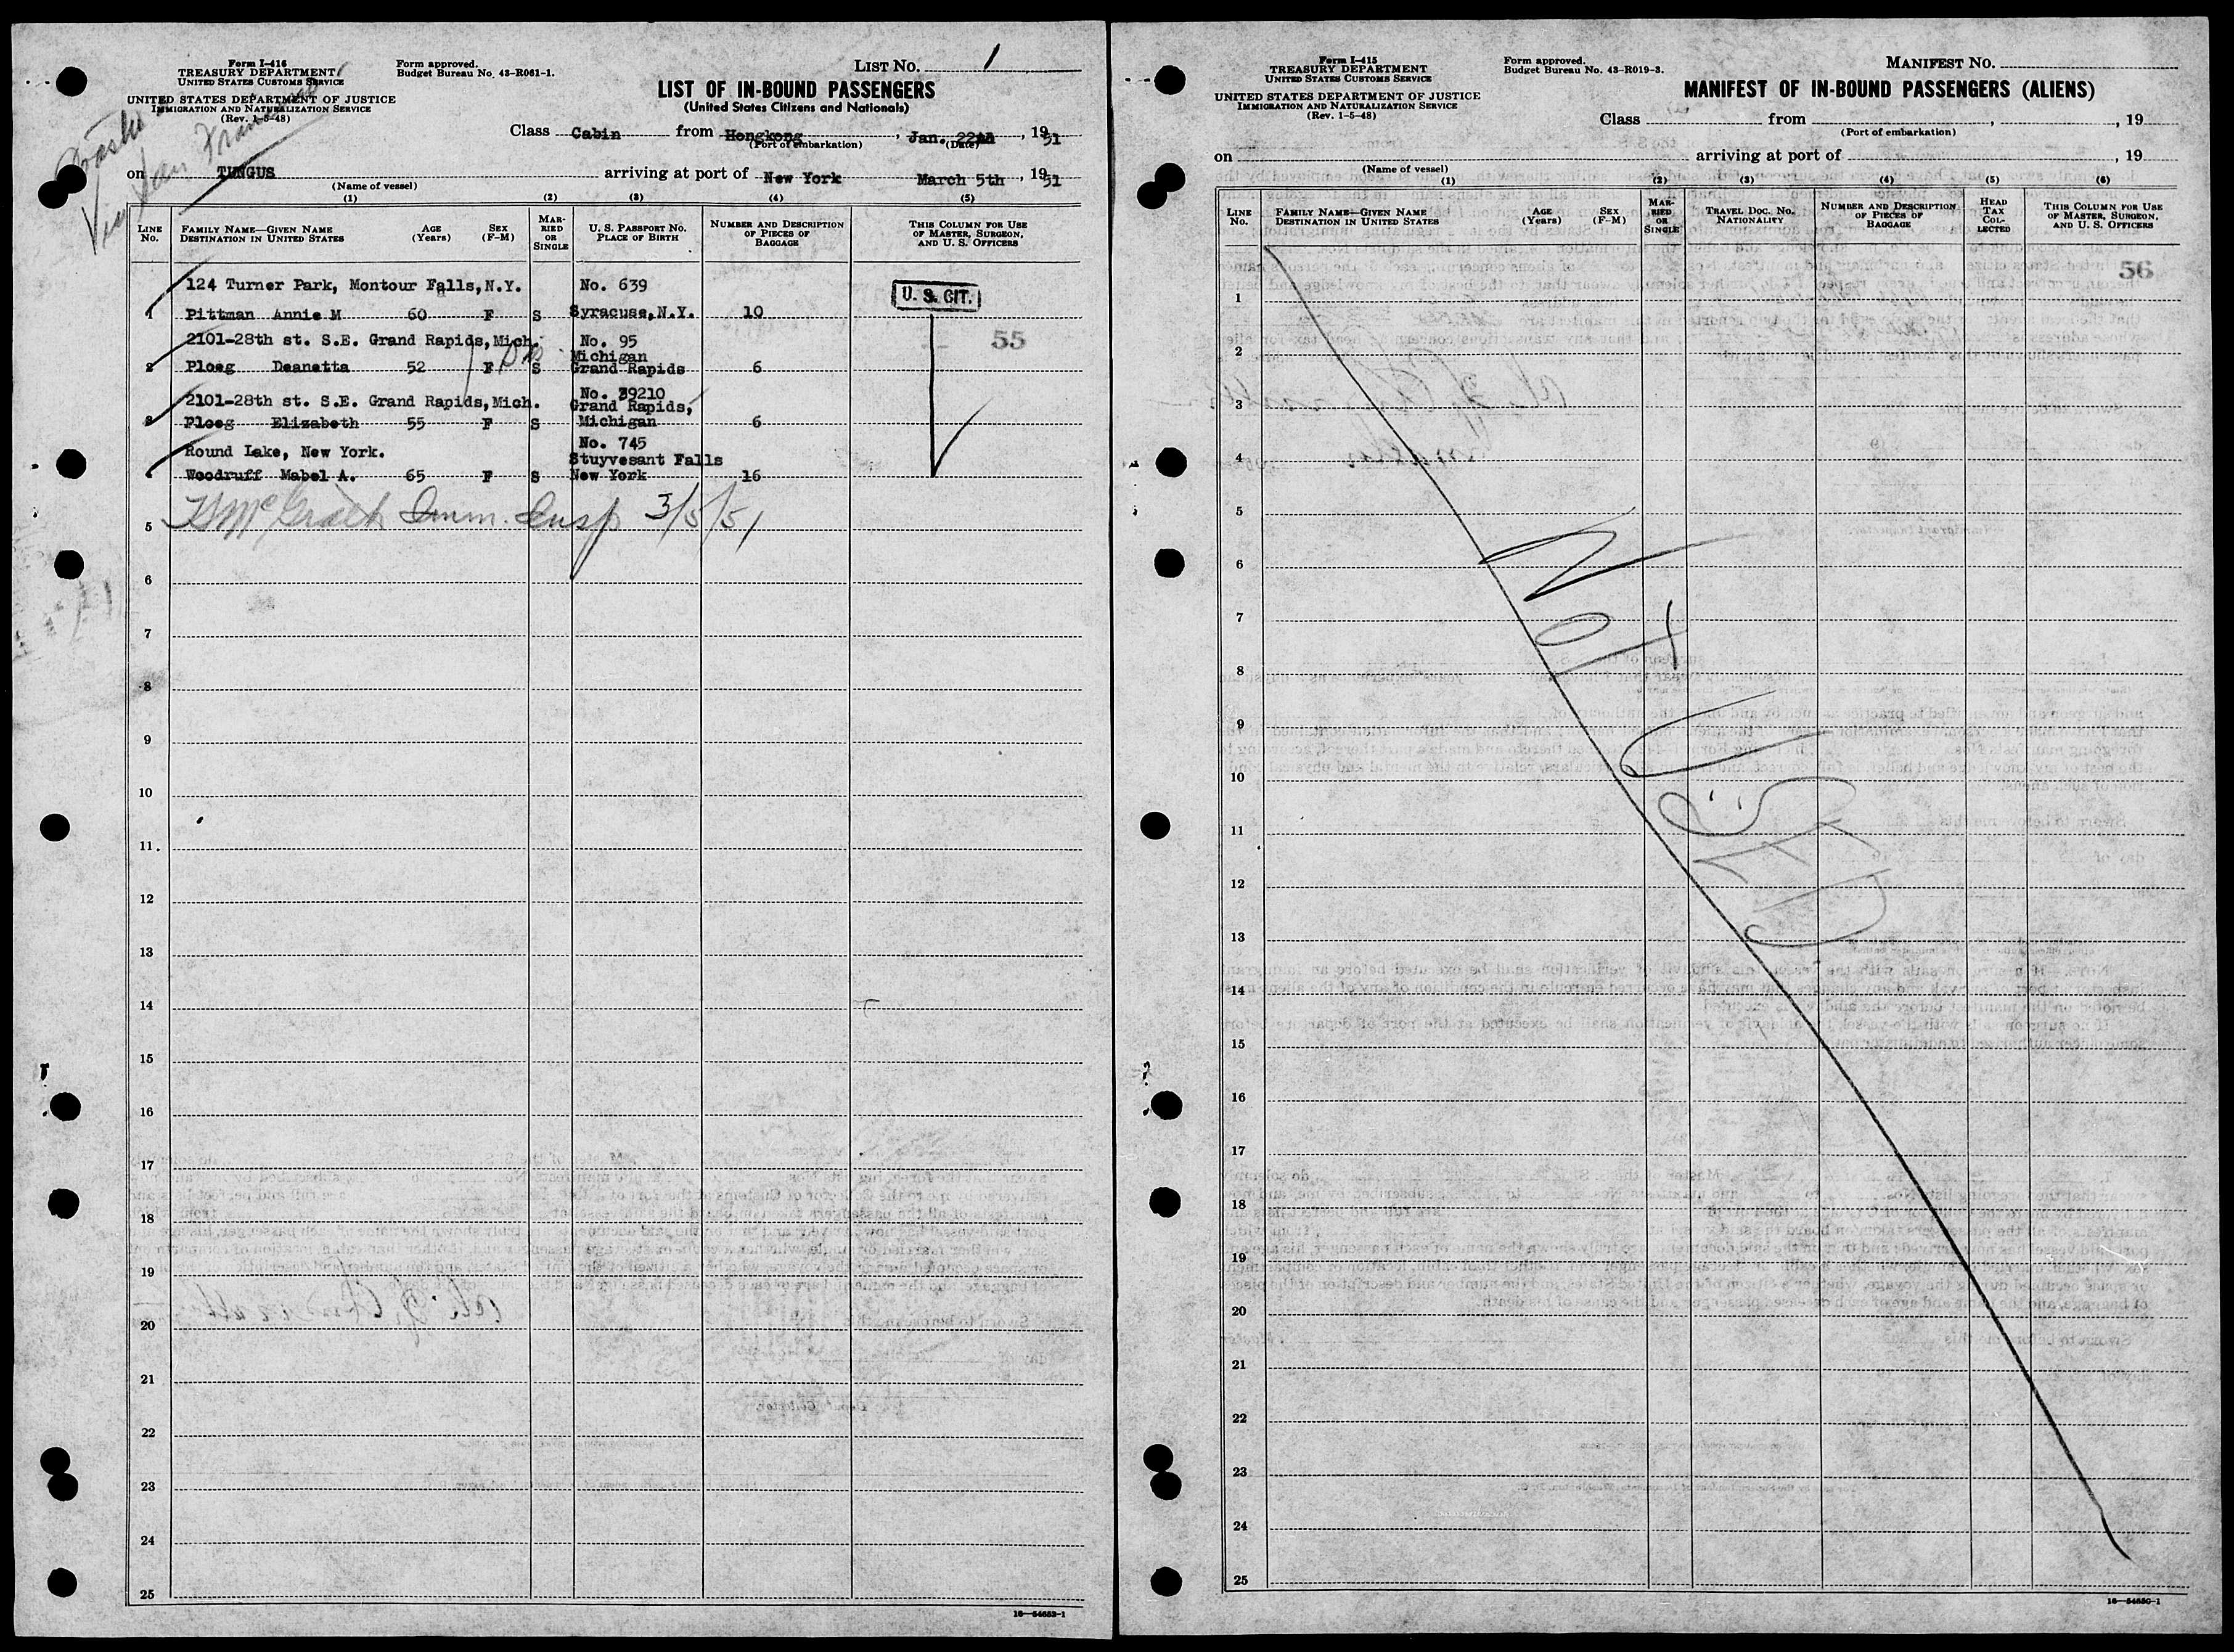 Form I-416
TREASURY DEPARTMENT
UNITED STATES CUSTOMS SERVICE
UNITED STATES DEPARTMENT OF JUSTICE
IMMIGRATION AND NATURALIZATION SERVICE
(Rev. 1-5-48)
Form approved.
Budget Bureau No. 43-R061-1.
LIST NO. 1
LIST OF IN-BOUND PASSENGERS
(United States Citizens and Nationals)
Via San Francisco
Class Cabin from Hongkong, Jan. 22nd, 1951
(Port of embarkation) (Date)
on TUNGUS arriving at port of New York March 5th, 1951
(Name of vessel)
(1) (2) (3) (4) (5)
LINE NO. FAMILY NAME—GIVEN NAME DESTINATION IN UNITED STATES AGE (Years) SEX (F-M) MARRIED OR SINGLE U. S. PASSPORT NO. PLACE OF BIRTH NUMBER AND DESCRIPTION OF PIECES OF BAGGAGE THIS COLUMN FOR USE OF MASTER, SURGEON, AND U. S. OFFICERS
124 Turner Park, Montour Falls, N.Y. No. 639
U. S. CIT.
1 Pittman Annie M 60 F S Syracuse, N.Y. 10
2101-28th st. S.E. Grand Rapids, Mich. No. 95
55
Michigan
2 Ploeg Deanetta 52 F S Grand Rapids 6
No. 39210
2101-28th st. S.E. Grand Rapids, Mich. Grand Rapids,
3 Ploeg Elizabeth 55 F S Michigan 6
No. 745
Round Lake, New York. Stuyvesant Falls
4 Woodruff Mabel A. 65 F S New York 16
5 McGrath Imm. Insp 3/5/51
6
7
8
9
10
11
12
13
14
15
16
17
18
19
20
21
22
23
24
25
16—54652-1
Form I-415
TREASURY DEPARTMENT
UNITED STATES CUSTOMS SERVICE
UNITED STATES DEPARTMENT OF JUSTICE
IMMIGRATION AND NATURALIZATION SERVICE
(Rev. 1-5-48)
Form approved.
Budget Bureau No. 43-R019-3.
MANIFEST NO.
MANIFEST OF IN-BOUND PASSENGERS (ALIENS)
Class from , , 19
(Port of embarkation)
on arriving at port of , 19
(Name of vessel)
(1) (2) (3) (4) (5) (6)
LINE NO. FAMILY NAME—GIVEN NAME DESTINATION IN UNITED STATES AGE (Years) SEX (F-M) MARRIED OR SINGLE TRAVEL DOC. NO. NATIONALITY NUMBER AND DESCRIPTION OF PIECES OF BAGGAGE HEAD TAX COLLECTED THIS COLUMN FOR USE OF MASTER, SURGEON, AND U. S. OFFICERS
56
1
2
3
4
5
6
7
8
9
10
11
12
13
14
15
16
17
18
19
20
21
22
23
24
25
NOT USED
16—54650-1